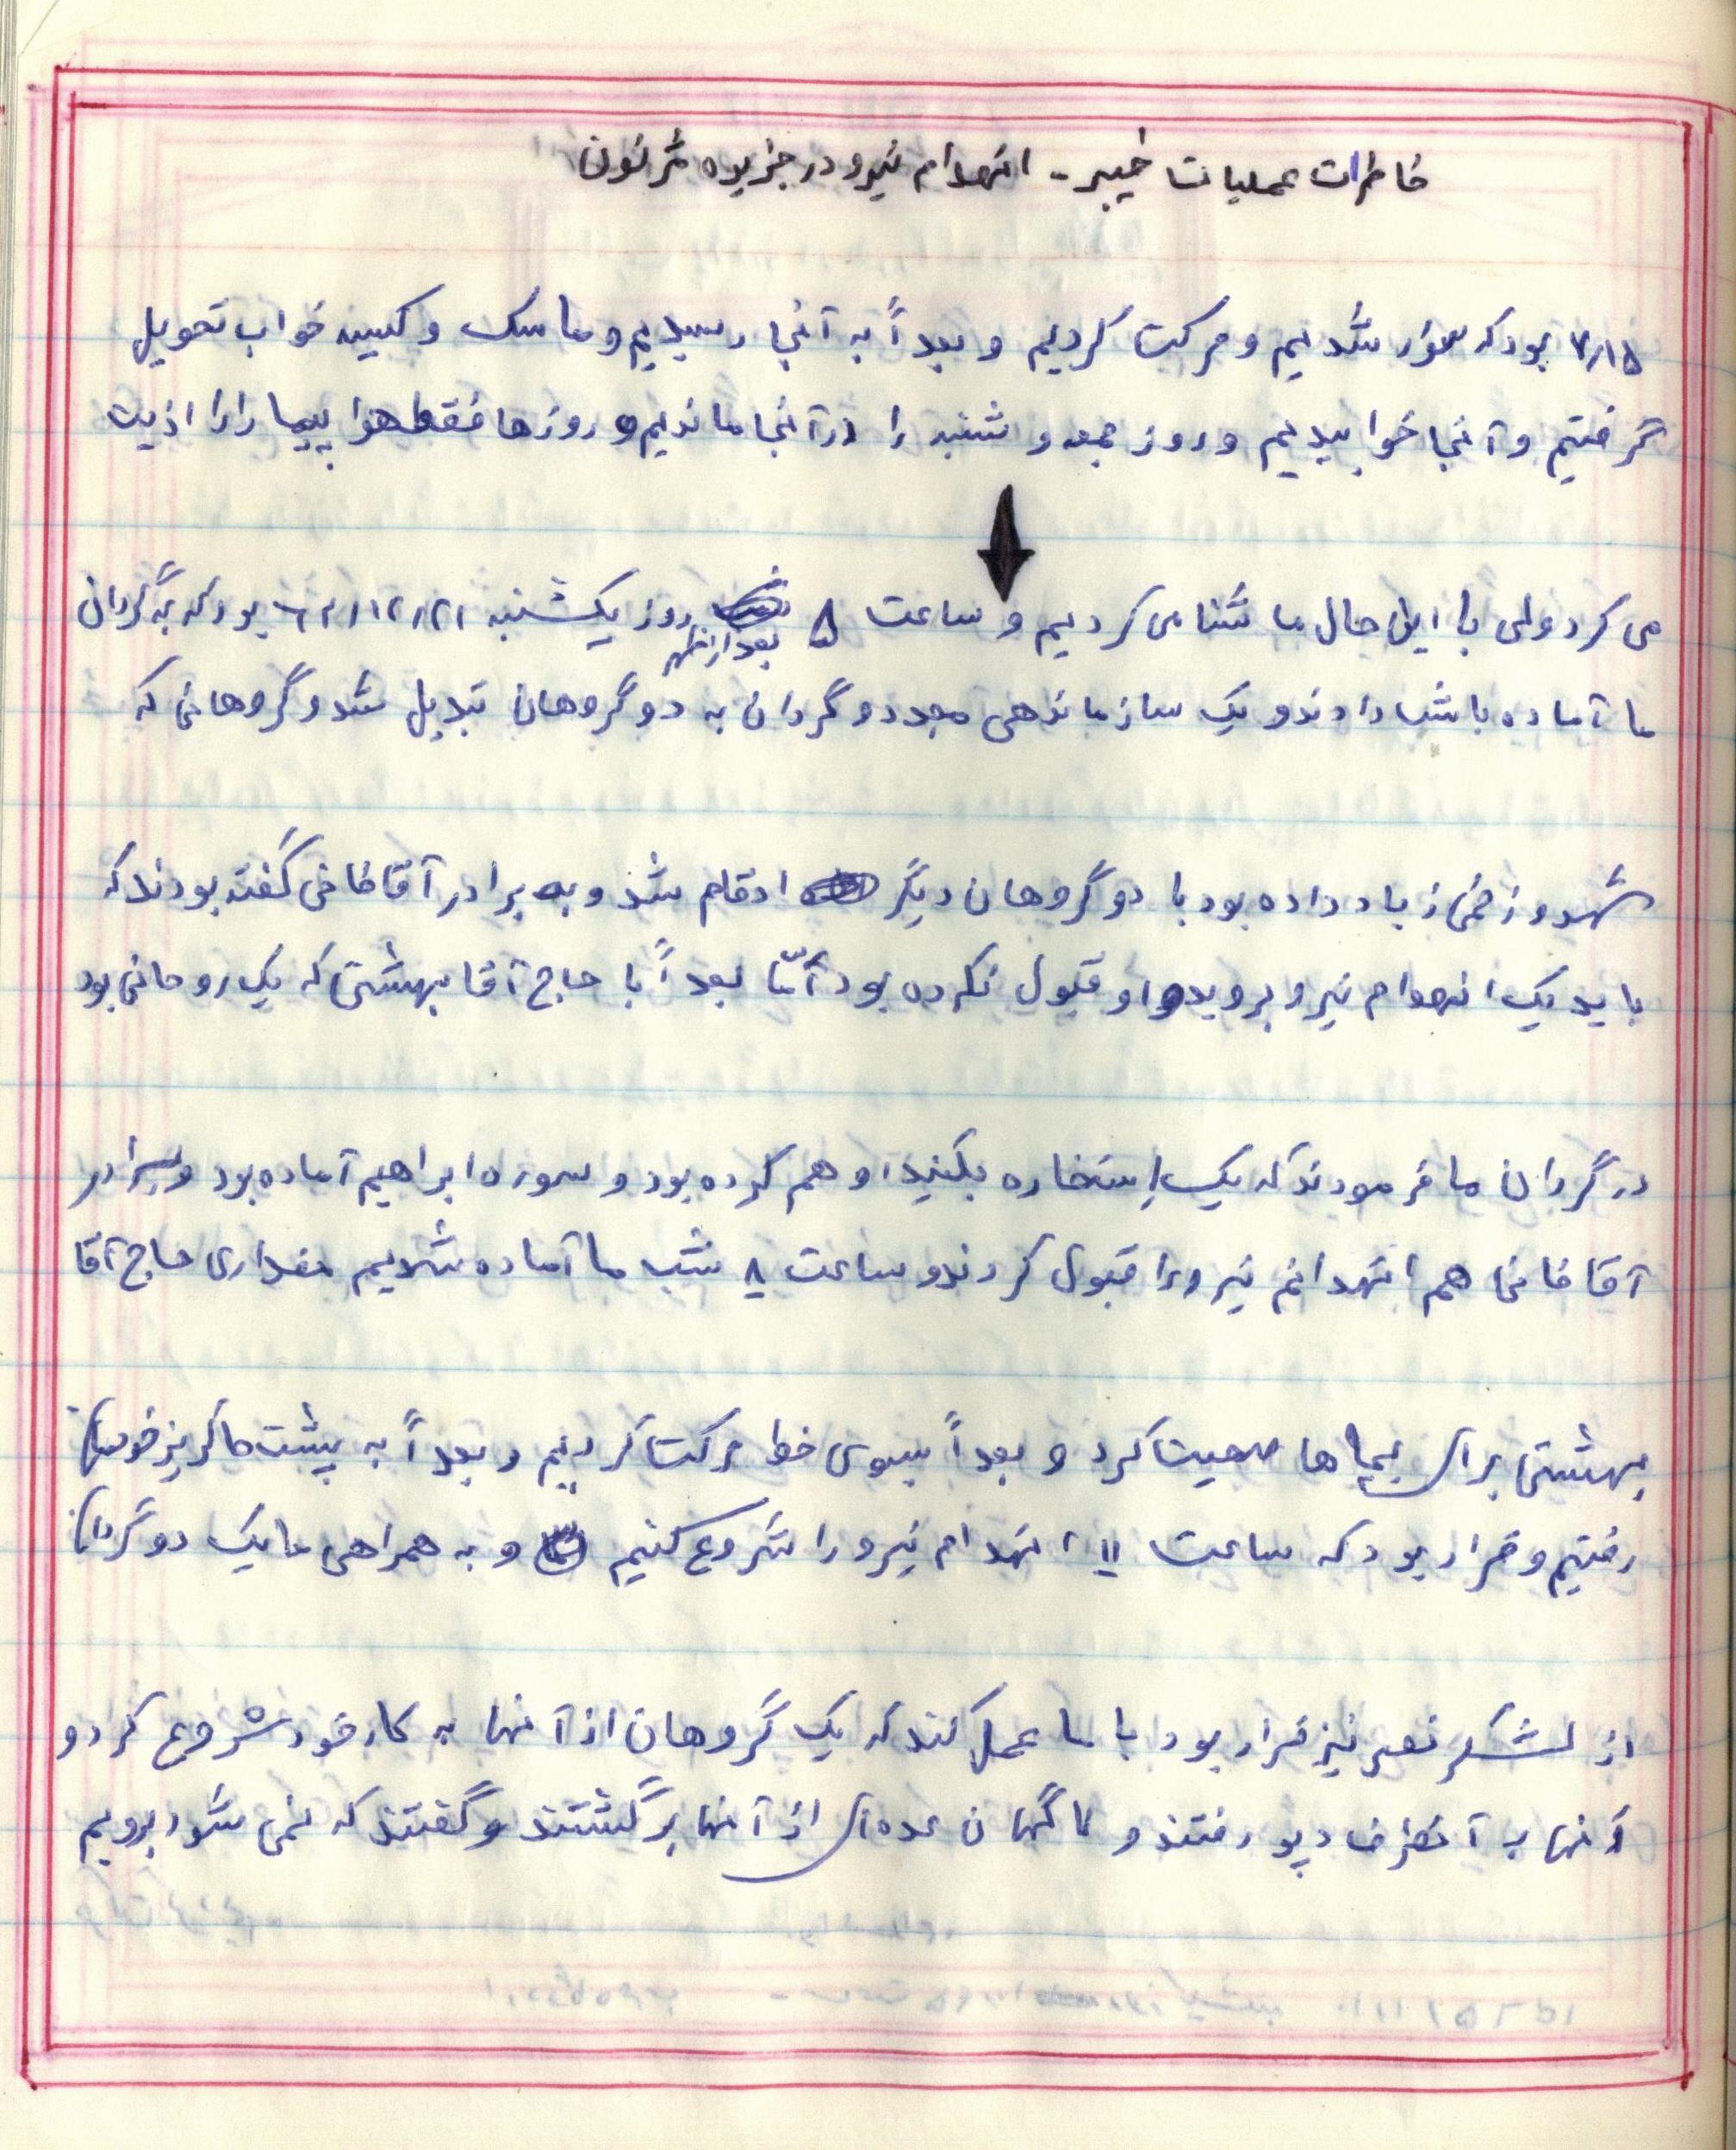 خاطرات عملیات خیبر - انهدام نیرو در جزیره مجنون
۷/۱۵ بود که سوار شدیم و حرکت کردیم و بعداً به آنجا رسیدیم و ماسک و کیسه خواب تحویل
گرفتیم و آنجا خوابیدیم و روز جمعه و شنبه را در آنجا ماندیم و روزها فقط هواپیما را را اذیت
می کرد ولی با این حال ما شنا می کردیم و ساعت ۵ بعد از ظهر روز یکشنبه ۶۲/۱۲/۲۱ بود که به گردان
ما آماده باش دادند و یک سازماندهی مجدد و گردان به دو گروهان تبدیل شد و گروهانی که
شهد و زخمی زیاد داده بود با دو گروهان دیگر ادقام شد و به برادر آقاخانی گفته بودند که
باید یک انهدام نیرو بروید و او قبول نکرده بود امّا بعداً با حاج آقا بهشتی که یک روحانی بود
در گردان ما فرمودند که یک استخاره بکنید او هم کرده بود و سوره ابراهیم آماده بود و برادر
آقاخانی هم انهدانم نیرو را قبول کردند و ساعت ۸ شب ما آماده شدیم مقداری حاج آقا
بهشتی برای بچه ها صحبت کرد و بعداً بسوی خط حرکت کردیم و بعداً به پشت خاکریز خودمان
رفتیم و قرار بود که ساعت ۱۱ انهدام نیرو را شروع کنیم و به همراهی ما یک دو گردان
از لشکر نصر نیز قرار بود با ما عمل کند که یک گروهان از آنها به کار خود شروع کرد و
آنها به آنطرف رفتند و ناگهان عده‌ای از آنها برگشتند و گفتند که نمی شود برویم